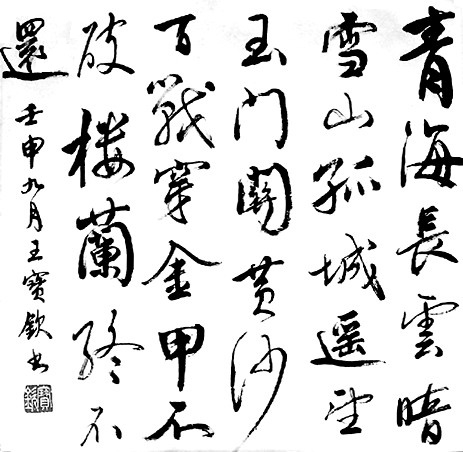 青海長雲暗
雪山孤城遥望
玉門關黄沙
百戰穿金甲不
破楼蘭終不
還
壬申九月王寶欽书